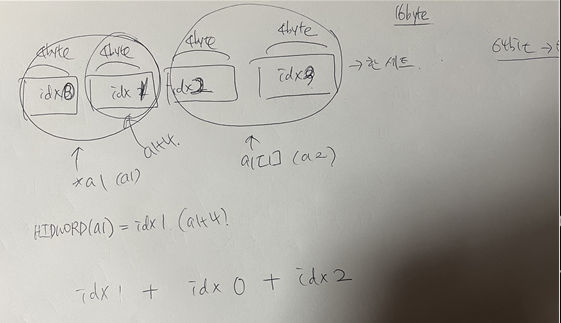 16byte
4byte 4byte 4byte 4byte
64bit →
idx0 idx1 idx2 idx3 → 한 세트.
a1+4.
*a1 (a1)
a1[1] (a2)
HIDWORD(a1) = idx1. (a1+4)!
idx1 + idx0 + idx2